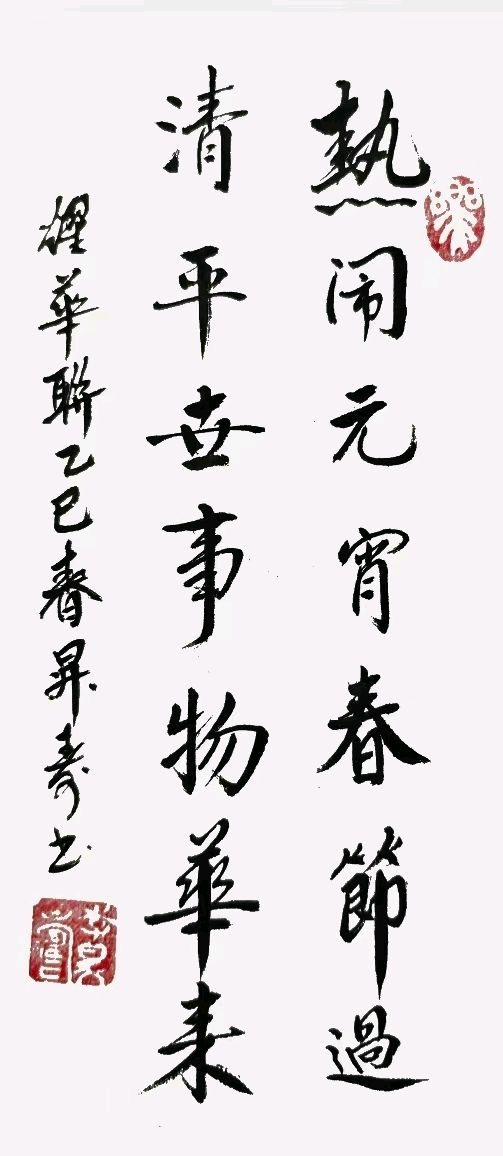 熱闹元宵春節過
清平世事物華来
耀華聯乙巳春昇壽书